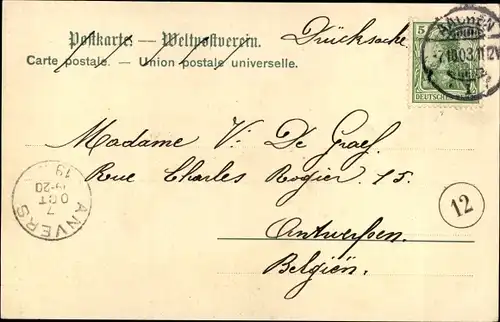 Postkarte. — Weltpostverein.
Drucksache
Carte postale. — Union postale universelle.
5
DEUTSCHES REICH
AACHEN
7.10.03.11-12V
1
Madame V. De Graef.
Rue Charles Rogier. 15.
Antwerpen.
Belgien.
ANVERS
7
OCT
19
12